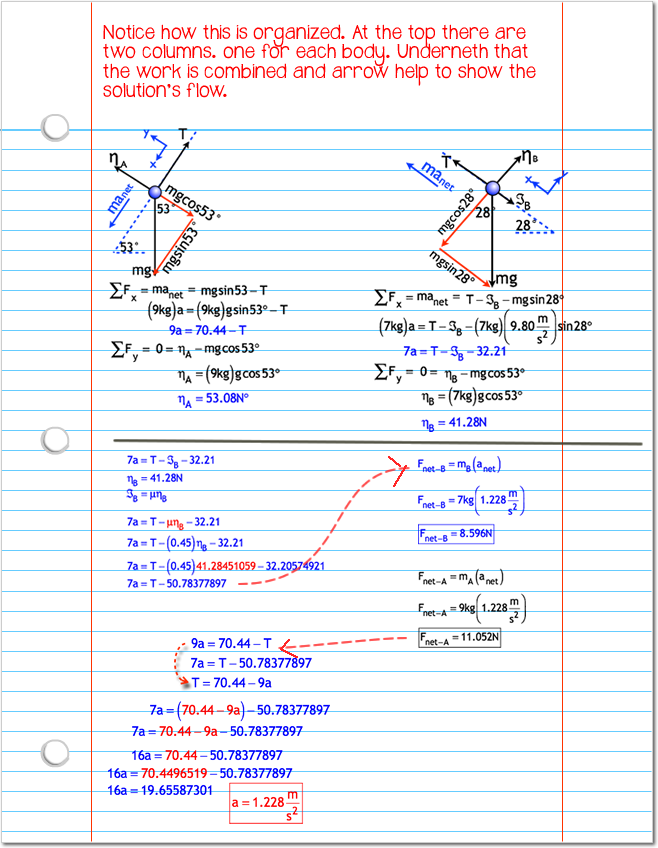 Notice how this is organized. At the top there are
two columns. one for each body. Underneth that
the work is combined and arrow help to show the
solution's flow.
y
x
T
η_A
ma_net
53°
mgcos53°
mgsin53°
53°
mg
∑F_x = ma_net = mgsin53 – T
(9kg)a = (9kg)gsin53° – T
9a = 70.44 – T
∑F_y = 0 = η_A – mgcos53°
η_A = (9kg)gcos53°
η_A = 53.08N°
T
η_B
ma_net
y
x
ℑ_B
28°
mgcos28°
28°
mgsin28°
mg
∑F_x = ma_net = T – ℑ_B – mgsin28°
(7kg)a = T – ℑ_B – (7kg)(9.80 m/s²)sin28°
7a = T – ℑ_B – 32.21
∑F_y = 0 = η_B – mgcos53°
η_B = (7kg)gcos53°
η_B = 41.28N
7a = T – ℑ_B – 32.21
η_B = 41.28N
ℑ_B = μη_B
7a = T – μη_B – 32.21
7a = T – (0.45)η_B – 32.21
7a = T – (0.45)41.28451059 – 32.20574921
7a = T – 50.78377897
F_net–B = m_B(a_net)
F_net–B = 7kg(1.228 m/s²)
F_net–B = 8.596N
F_net–A = m_A(a_net)
F_net–A = 9kg(1.228 m/s²)
F_net–A = 11.052N
9a = 70.44 – T
7a = T – 50.78377897
T = 70.44 – 9a
7a = (70.44 – 9a) – 50.78377897
7a = 70.44 – 9a – 50.78377897
16a = 70.44 – 50.78377897
16a = 70.4496519 – 50.78377897
16a = 19.65587301
a = 1.228 m/s²